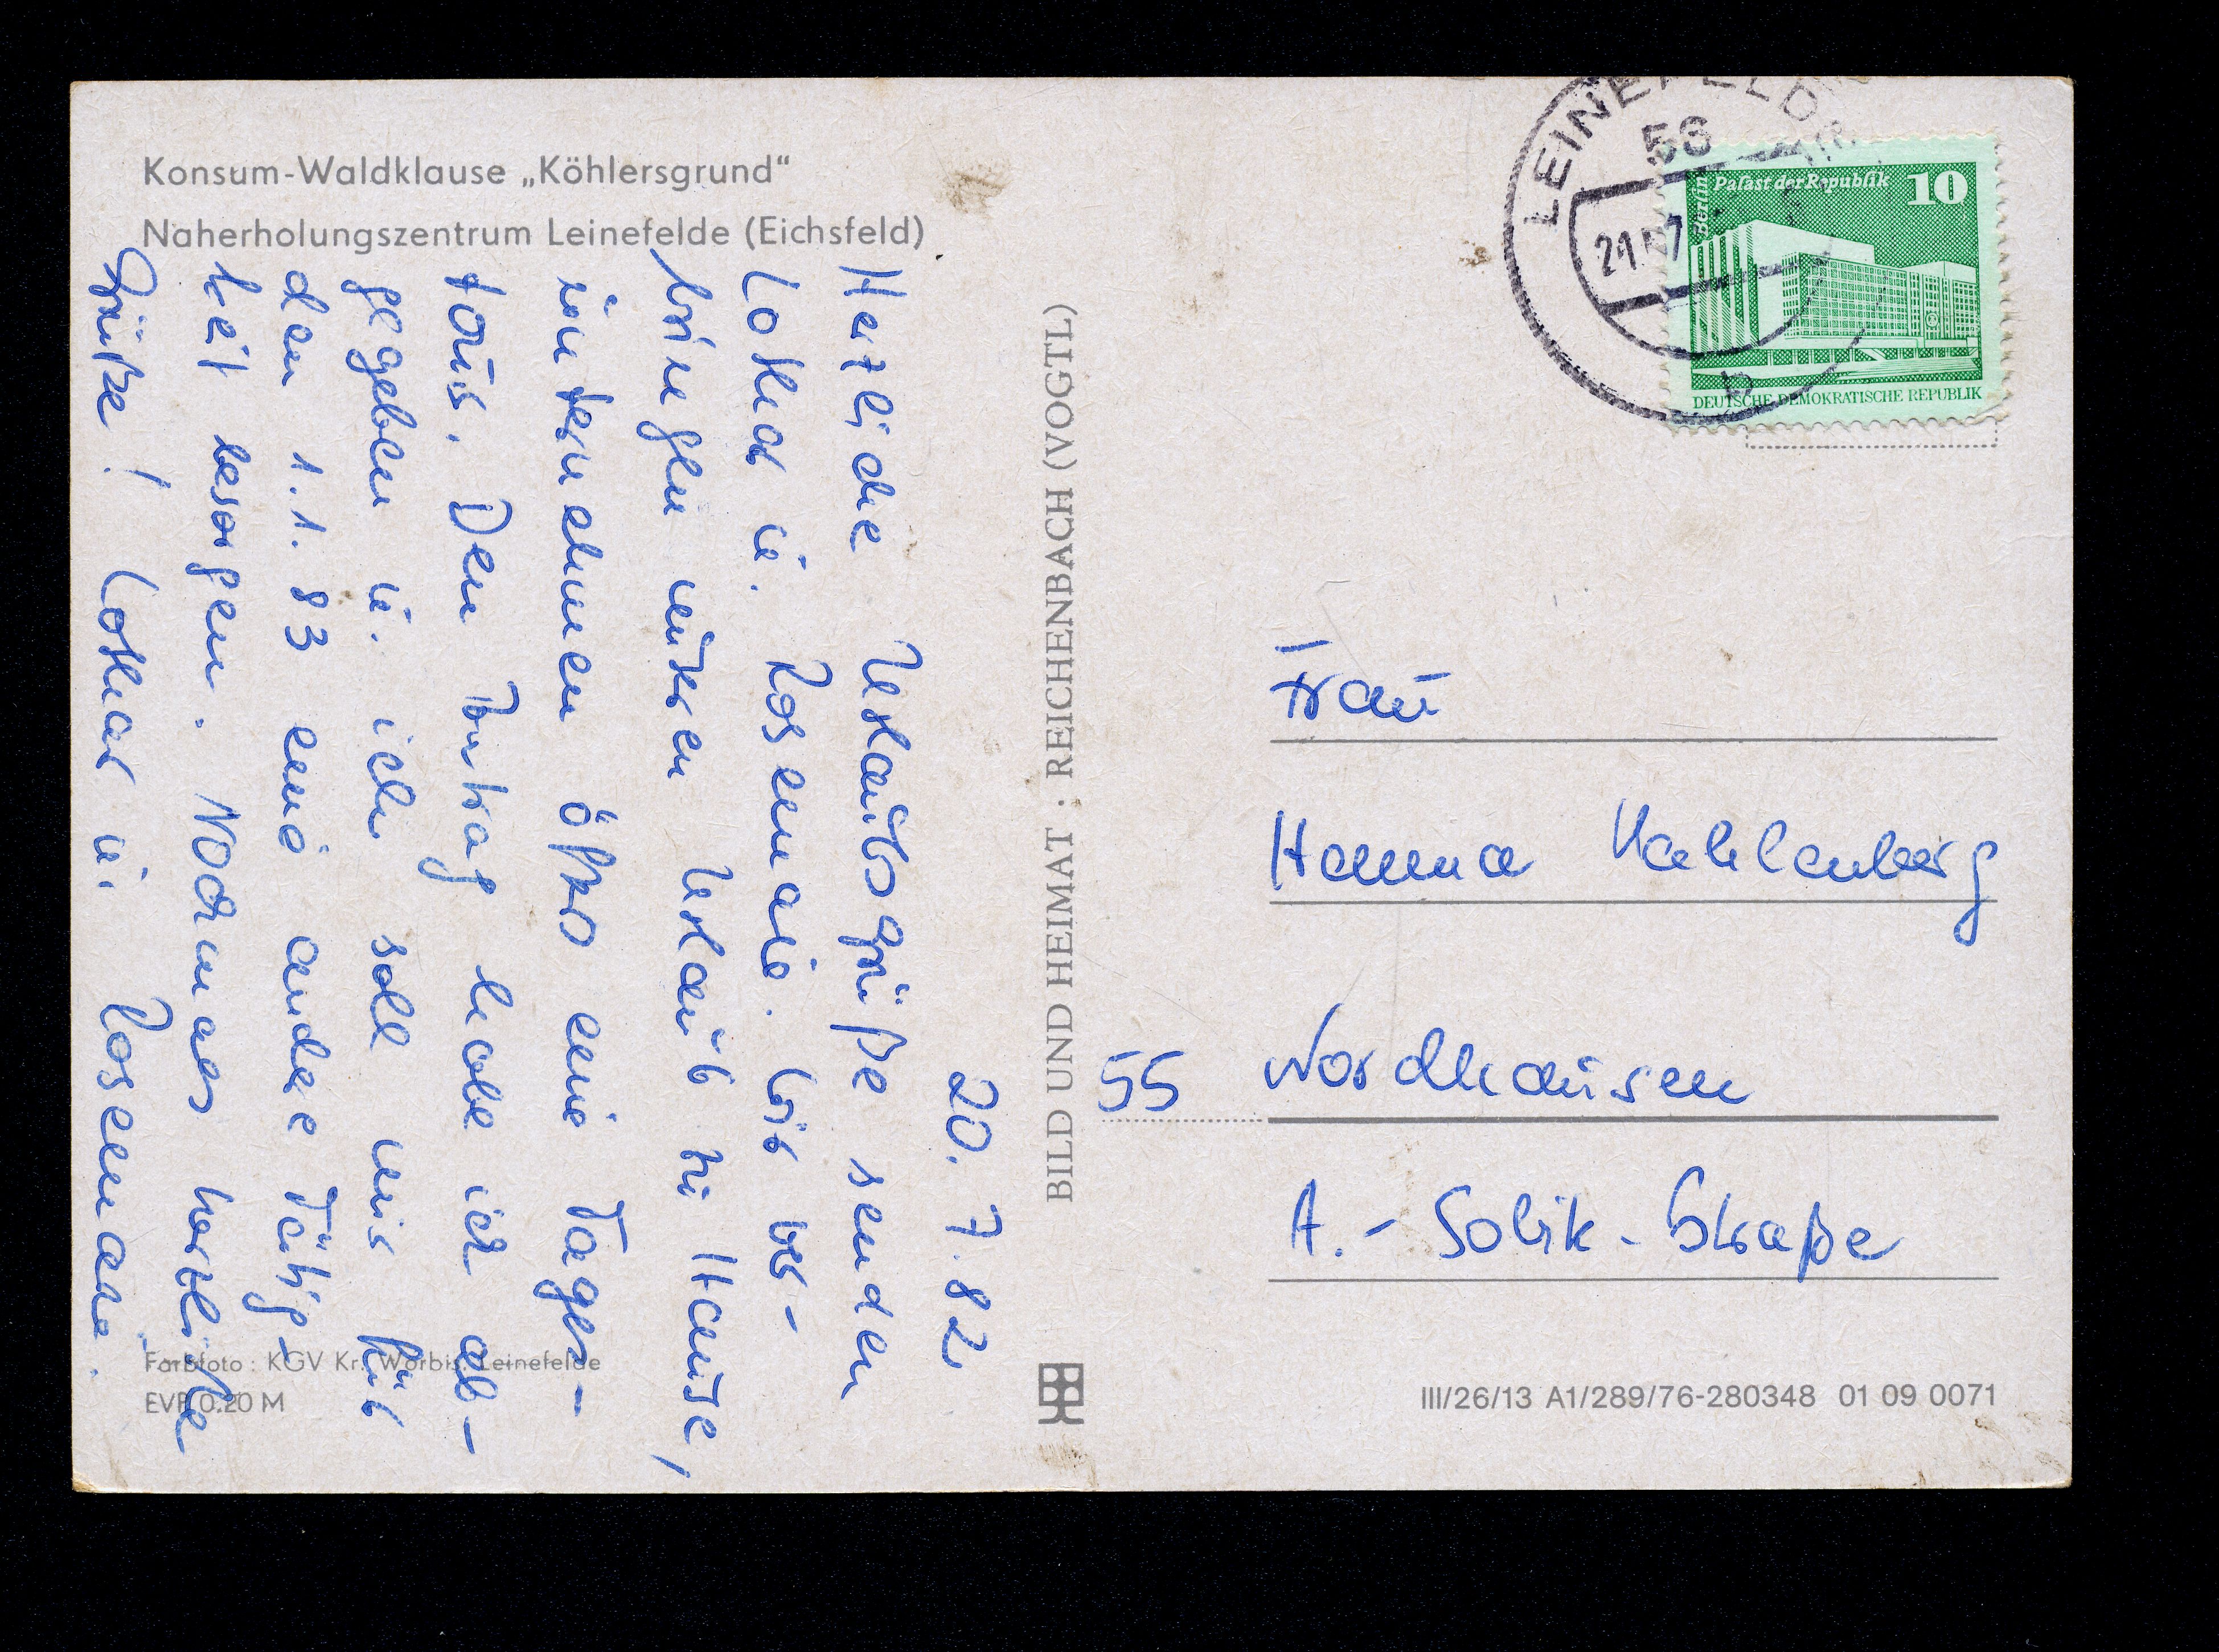 Konsum-Waldklause „Köhlersgrund“
Naherholungszentrum Leinefelde (Eichsfeld)
20. 7. 82
Herzliche Urlaubsgrüße senden
Lothar u. Rosemarie. Wir ver-
bringen unseren Urlaub zu Hause,
unternehmen öfters eine Tages-
tour. Den Antrag habe ich ab-
gegeben u. ich soll mis für
den 1.1.83 eine andere Tätig-
keit besorgen. Nochmals herzliche
Grüße! Lothar u. Rosemarie.
Farbfoto: KGV Kr. Worbis, Leinefelde
EVP 0.20 M
BILD UND HEIMAT · REICHENBACH (VOGTL)
LEINEFELDE
56
21.07
b
Berlin
Palast der Republik
10
DEUTSCHE DEMOKRATISCHE REPUBLIK
Frau
Hanna
55 Nordhausen
A.-Solik-Straße
III/26/13 A1/289/76-280348 01 09 0071